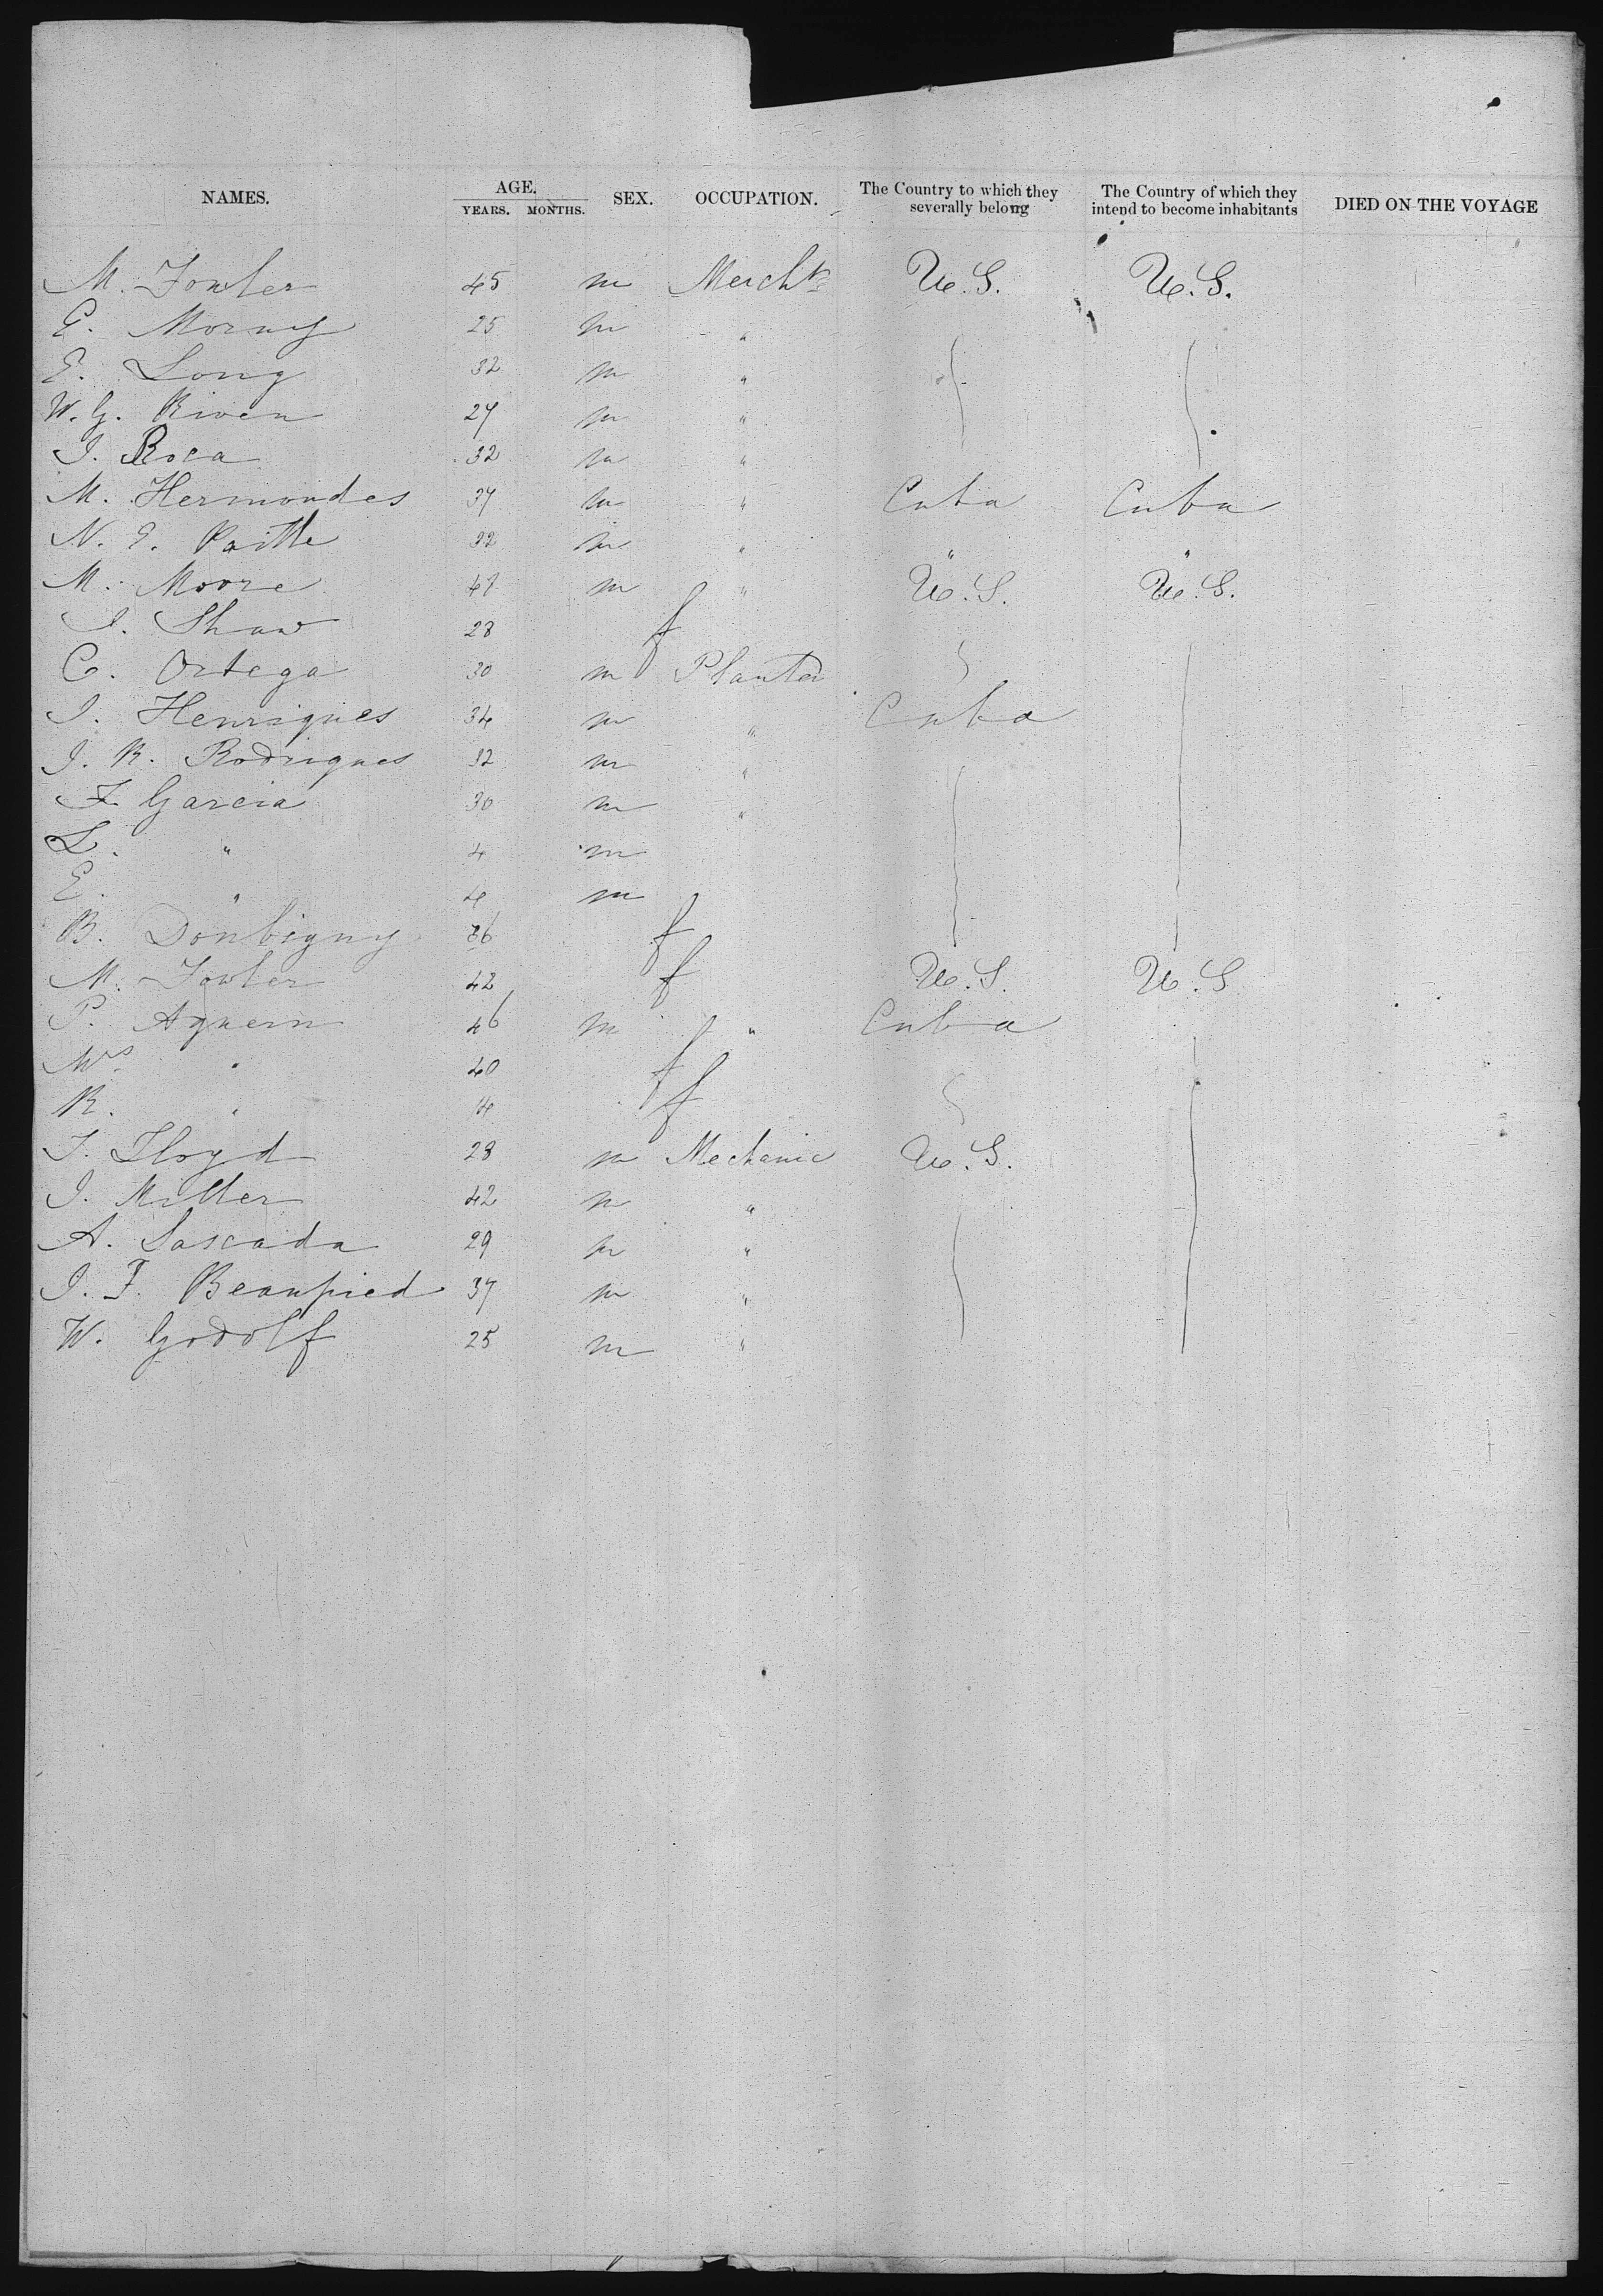 NAMES. AGE. YEARS. MONTHS. SEX. OCCUPATION. The Country to which they severally belong The Country of which they intend to become inhabitants DIED ON THE VOYAGE
M. Fowler 45 m Merchts U.S. U.S.
E. Morney 25 m "
E. Long 32 m "
W. G. Riven 27 m "
J. Roca 32 m "
M. Hermondes 37 m " Cuba Cuba
N. E. 32 m " " "
M. Moore 47 m " U.S. U.S.
J. Shaw 28 f
C. Ortega 30 m Planter
J. Henriques 34 m " Cuba
J. R. Rodrigues 32 m "
F. Garcia 30 m "
L. " 4 m
E. " 4 m
B. Donbigny 36 f
M. Fowler 42 f U.S. U.S
P. Aguern 46 m " Cuba
Mrs. " 40 f
R. " 14 f
T. Lloyd 28 m Mechanic U.S.
J. Miller 42 m "
A. Lascada 29 m "
J. F. Beaupied 37 m "
W. Godolf 25 m "